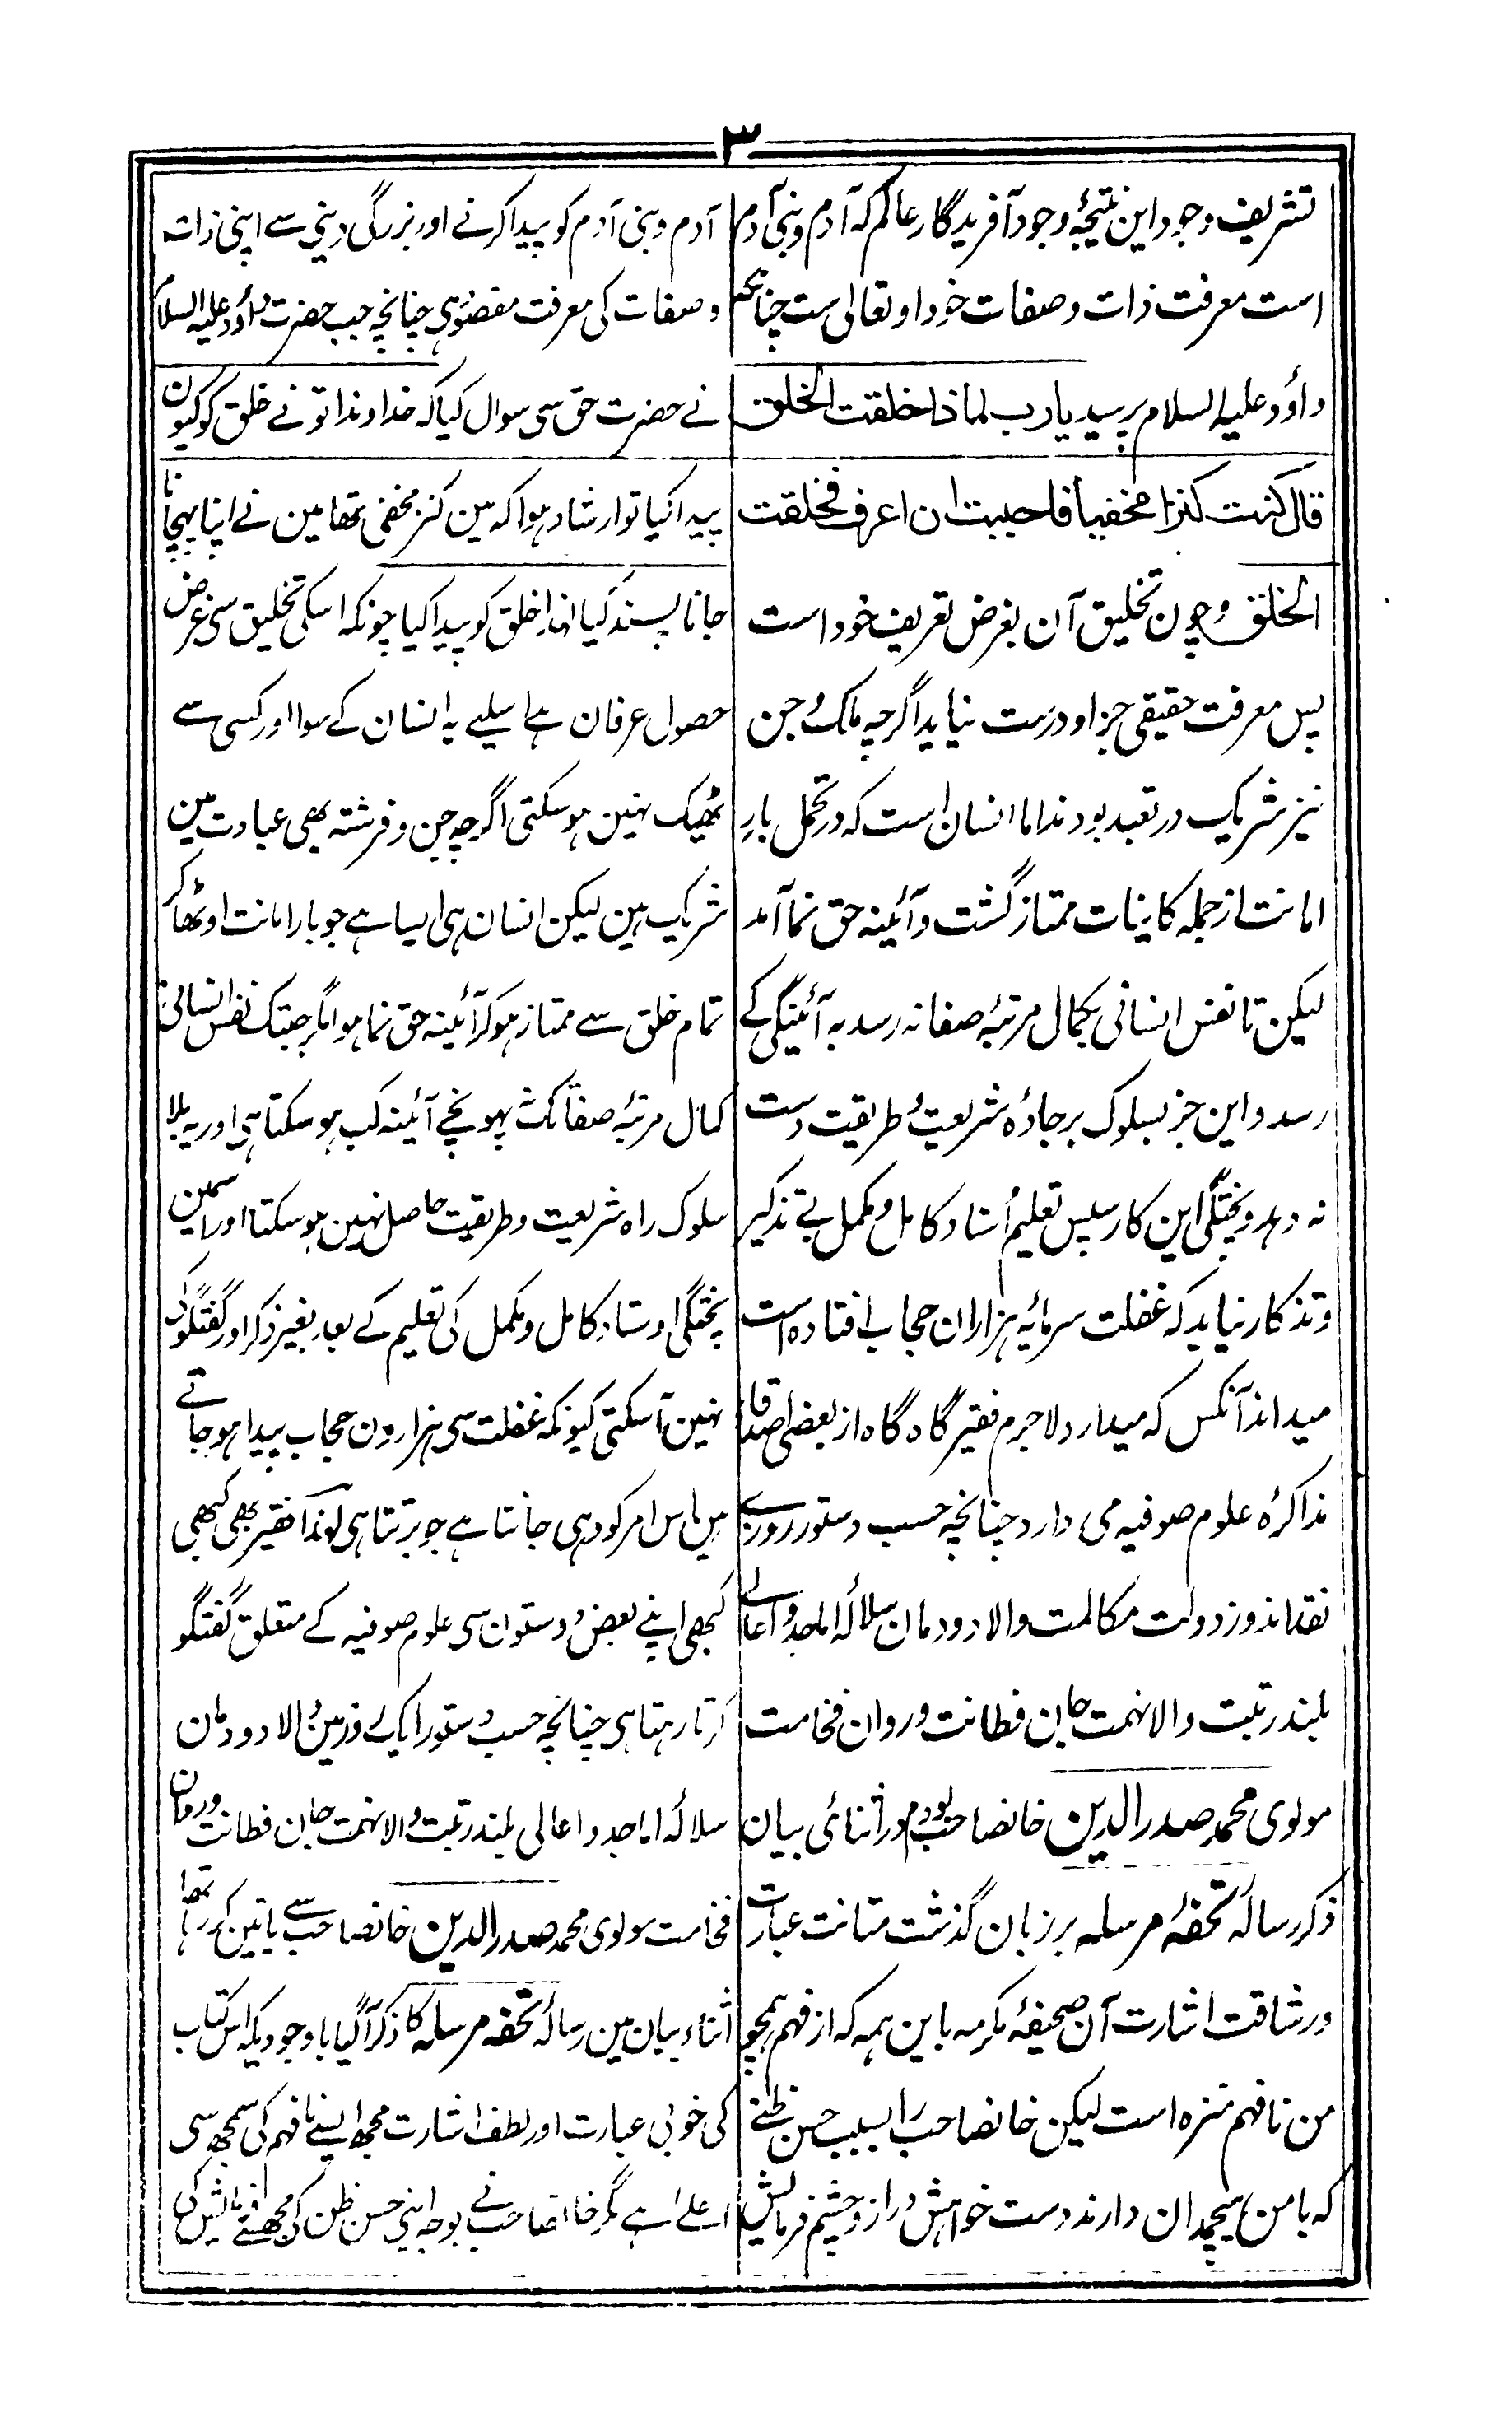 ۳
تشریف وجود این نتیجۂ وجود آفریدگار عالم کہ آدم و بنی آدم
است معرفت ذات و صفات خود او تعالی ست چنانکہ
داؤد علیہ السلام پرسید یا رب لماذا خلقت الخلق
قال کنت کنزا مخفیا فاحببت ان اعرف فخلقت
الخلق و چون تخلیق آن بغرض تعریف خود است
پس معرفت حقیقی جز او درست نیاید اگرچہ ملک و جن
نیز شریک در تعبد بودند اما انسان است کہ در تحمل بارِ
امانت از جملہ کاینات ممتاز گشت و آئینہ حق نما آمد
لیکن تا نفس انسانی بکمال مرتبۂ صفا نہ رسد بہ آئینگی کے
رسد و این جز بسلوک بر جادۂ شریعت و طریقت دست
نہ دہد و پختگی این کار سپس تعلیم اُستاد کامل و مکمل بے تذکیر
و تذکار نیاید کہ غفلت سرمایۂ ہزاران حجاب افتادہ است
میداند آنکس کہ میدارد لاجرم فقیر گاہ گاہ از بعضے اصدقا
مذاکرۂ علوم صوفیہ می دارد چنانچہ حسب دستور روزے
نقد اندوز دولت مکالمت والا دودمان سلالۂ اماجد و اعالے
بلند رتبت والا نہمت جان فطانت و روان فخامت
مولوی محمد صدر الدین خانصاحب بودم در اثنائی بیان
ذکر رسالہ تحفۂ مرسلہ بر زبان گذشت متانت عبارت
و رشاقت اشارت آن صحیفۂ مکرمہ با این ہمہ کہ از فہم ہمچو
من نافہم منزہ است لیکن خانصاحب را بسبب حسن ظنے
کہ با من ہیچمدان دارند دست خواہش دراز و چشم فرمایش
آدم و بنی آدم کو پیدا کرنے اور بزرگی دینی سے اپنی ذات
و صفات کی معرفت مقصود ہی چنانچہ جب حضرت داؤد علیہ السلام
نے حضرت حق سی سوال کیا کہ خداوندا تو نے خلق کو کیون
پیدا کیا تو ارشاد ہوا کہ مین کنز مخفی تھا مین نے اپنا پہچانا
جانا پسند کیا لہٰذا خلق کو پیدا کیا چونکہ اسکی تخلیق سی غرض
حصول عرفان ہے اسلیے یہ انسان کے سوا اور کسی سے
ٹھیک نہین ہو سکتی اگرچہ جن و فرشتہ بھی عبادت مین
شریک ہین لیکن انسان ہی ایسا ہے جو بار امانت اوٹھا کر
تمام خلق سے ممتاز ہو کر آئینہ حق نما ہوا مگر جبتک نفس انسانی
کمال مرتبۂ صفا تک نہ پہونچے آئینہ کب ہو سکتا ہی اور یہ بلا
سلوک راہ شریعت و طریقت حاصل نہین ہو سکتا اور اسمین
پختگی اوستاد کامل و مکمل کی تعلیم کے بعد بغیر ذکر اور گفتگو کے
نہین آ سکتی کیونکہ غفلت سی ہزارون حجاب پیدا ہو جاتے
ہین اس امر کو وہی جانتا ہے جو برتتا ہی لہٰذا فقیر بھی کبھی
کبھی اپنے بعض دوستون سی علوم صوفیہ کے متعلق گفتگو
کرتا رہتا ہی چنانچہ حسب دستور ایک روز مین والا دودمان
سلالۂ اماجد و اعالی بلند رتبت والا نہمت جان فطانت و روان
فخامت مولوی محمد صدر الدین خانصاحب سے باتین کر رہا تھا
اثناء بیان مین رسالۂ تحفہ مرسلہ کا ذکر آگیا باوجودیکہ اس کتاب
کی خوبی عبارت اور لطف اشارت مجھ ایسے نافہم کی سمجھ سی
اعلے ہے مگر خانصاحب نے بوجہ اپنی حسن ظن کے مجھسے فرمایش کی